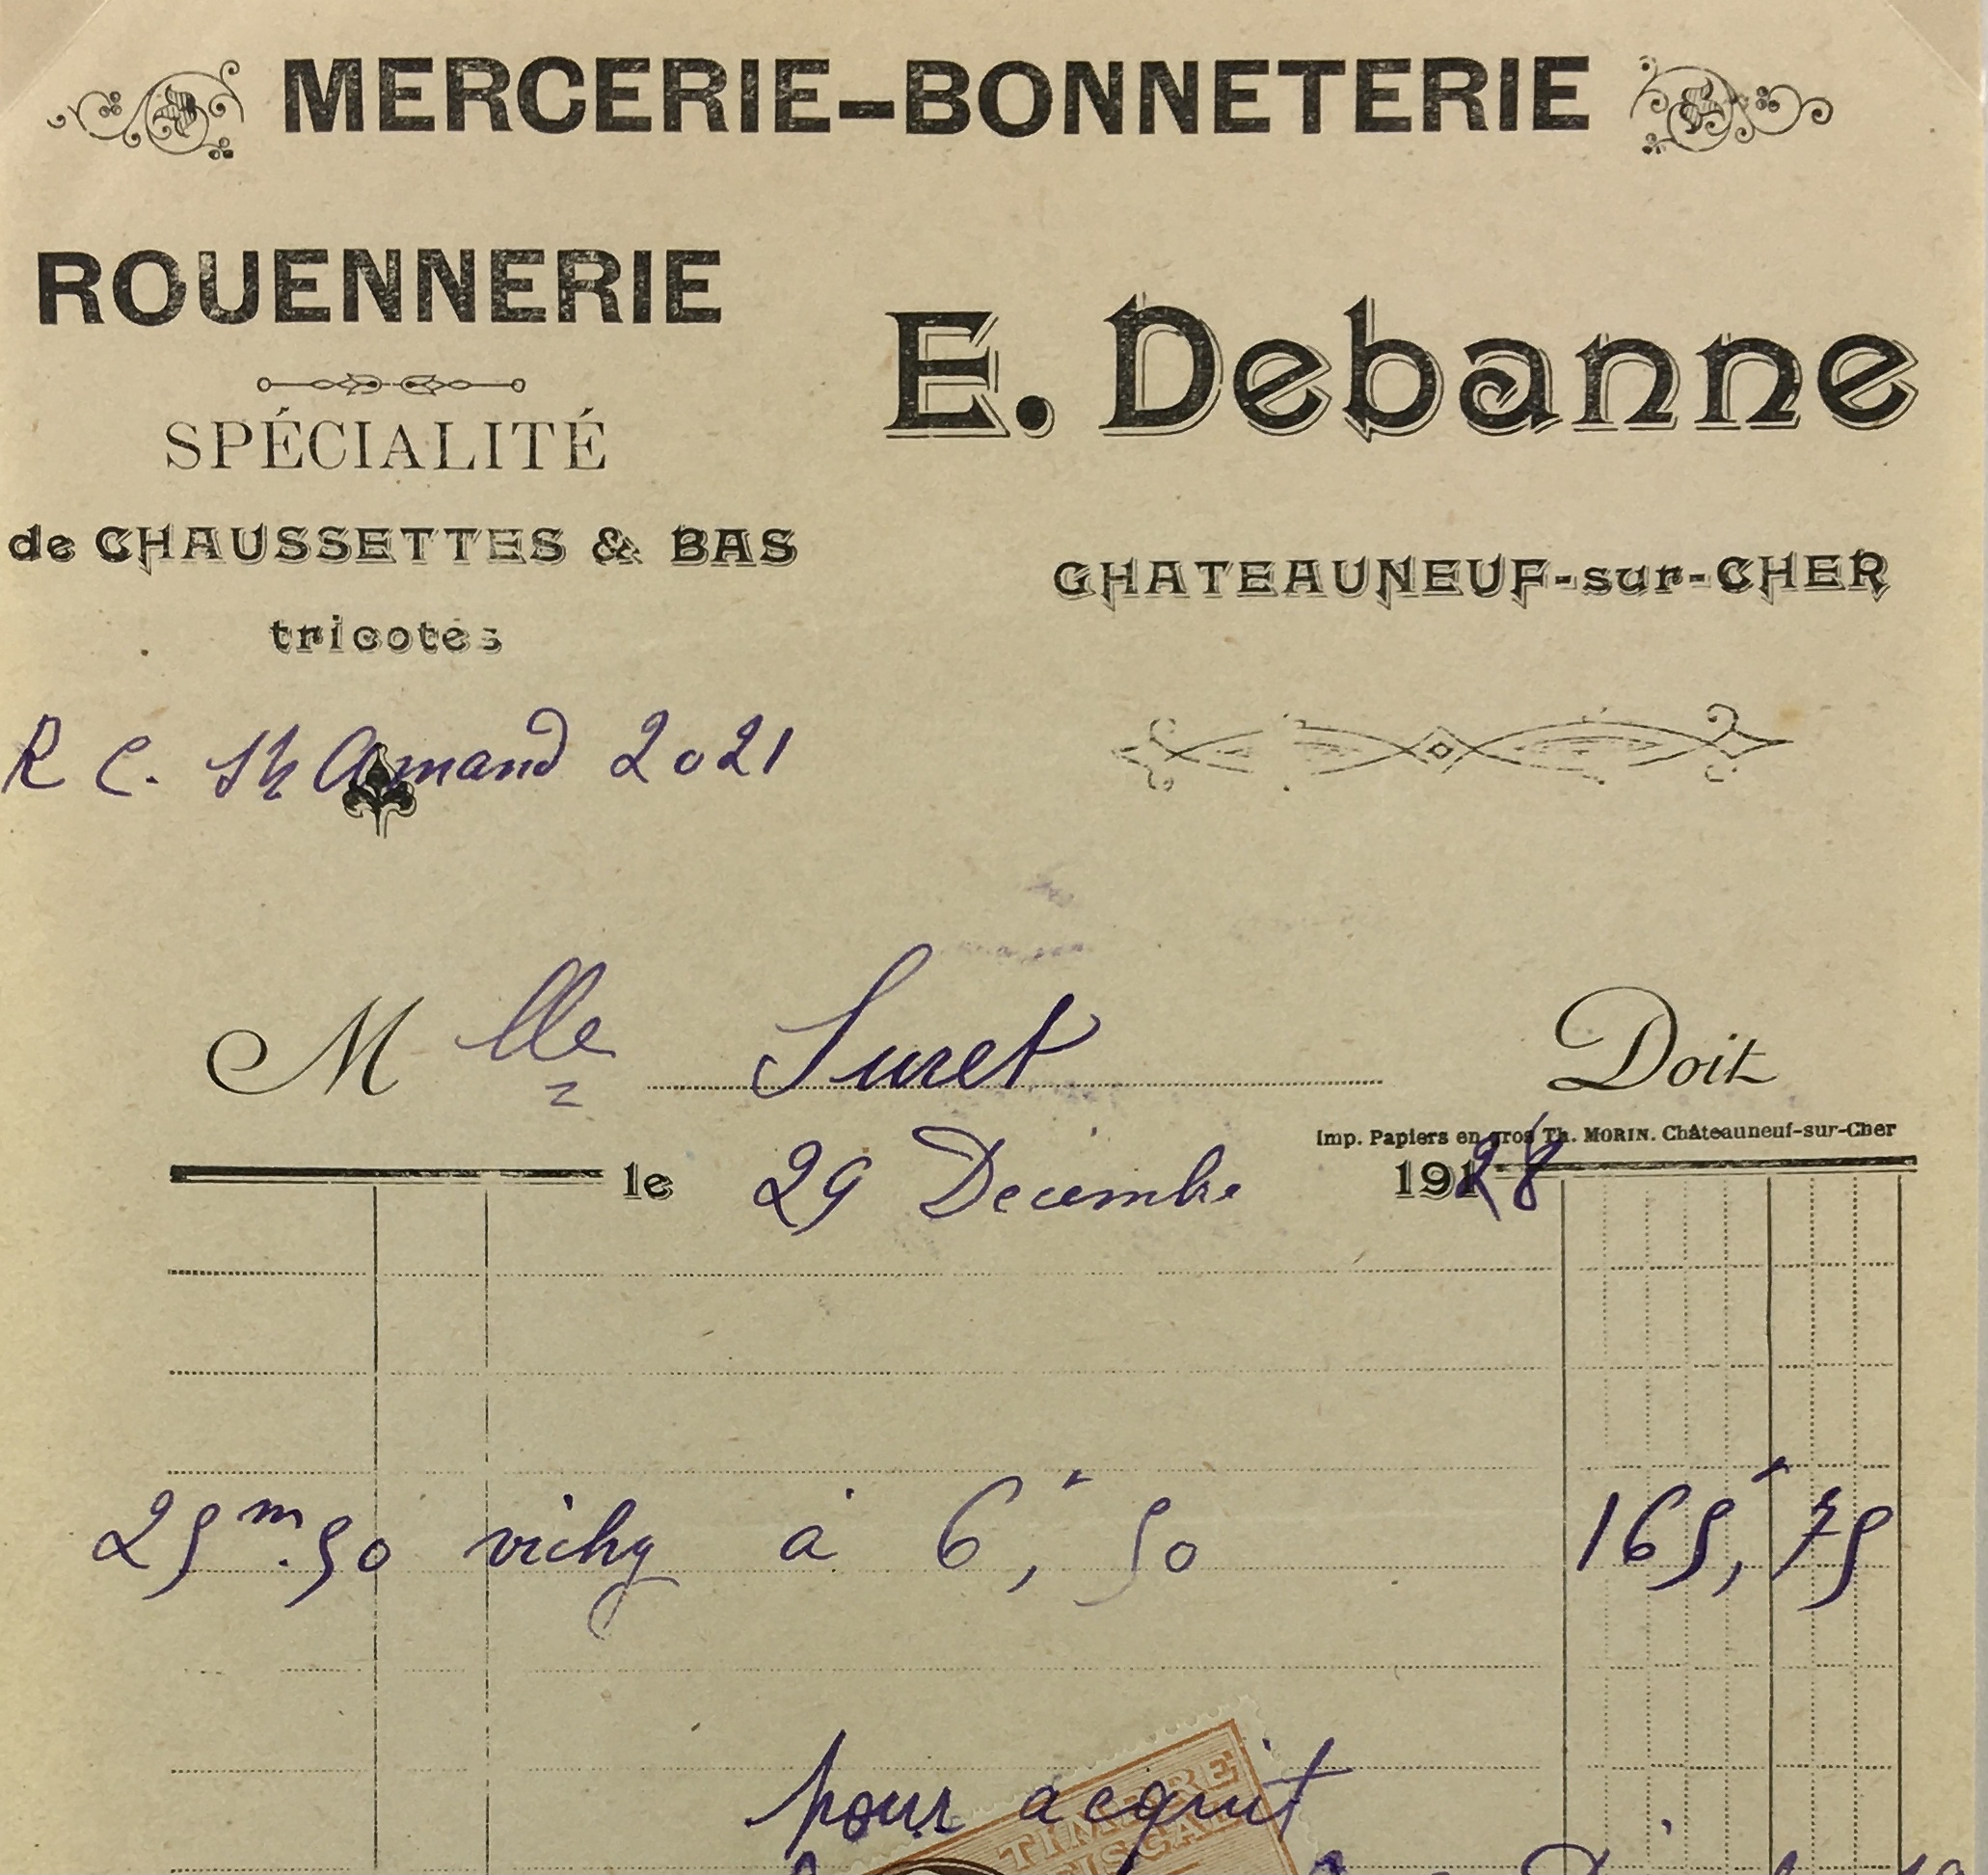 MERCERIE-BONNETERIE
ROUENNERIE
E. Debanne
SPÉCIALITÉ
de CHAUSSETTES & BAS
CHATEAUNEUF-sur-CHER
tricotés
R C. St Amand 2021
Mlle Suret Doit
Imp. Papiers en gros Th. MORIN. Châteauneuf-sur-Cher
le 29 Decembre 1928
25m.50 vichy à 6,f 50 165,f 75
pour acquit
TIMBRE
FISCAL